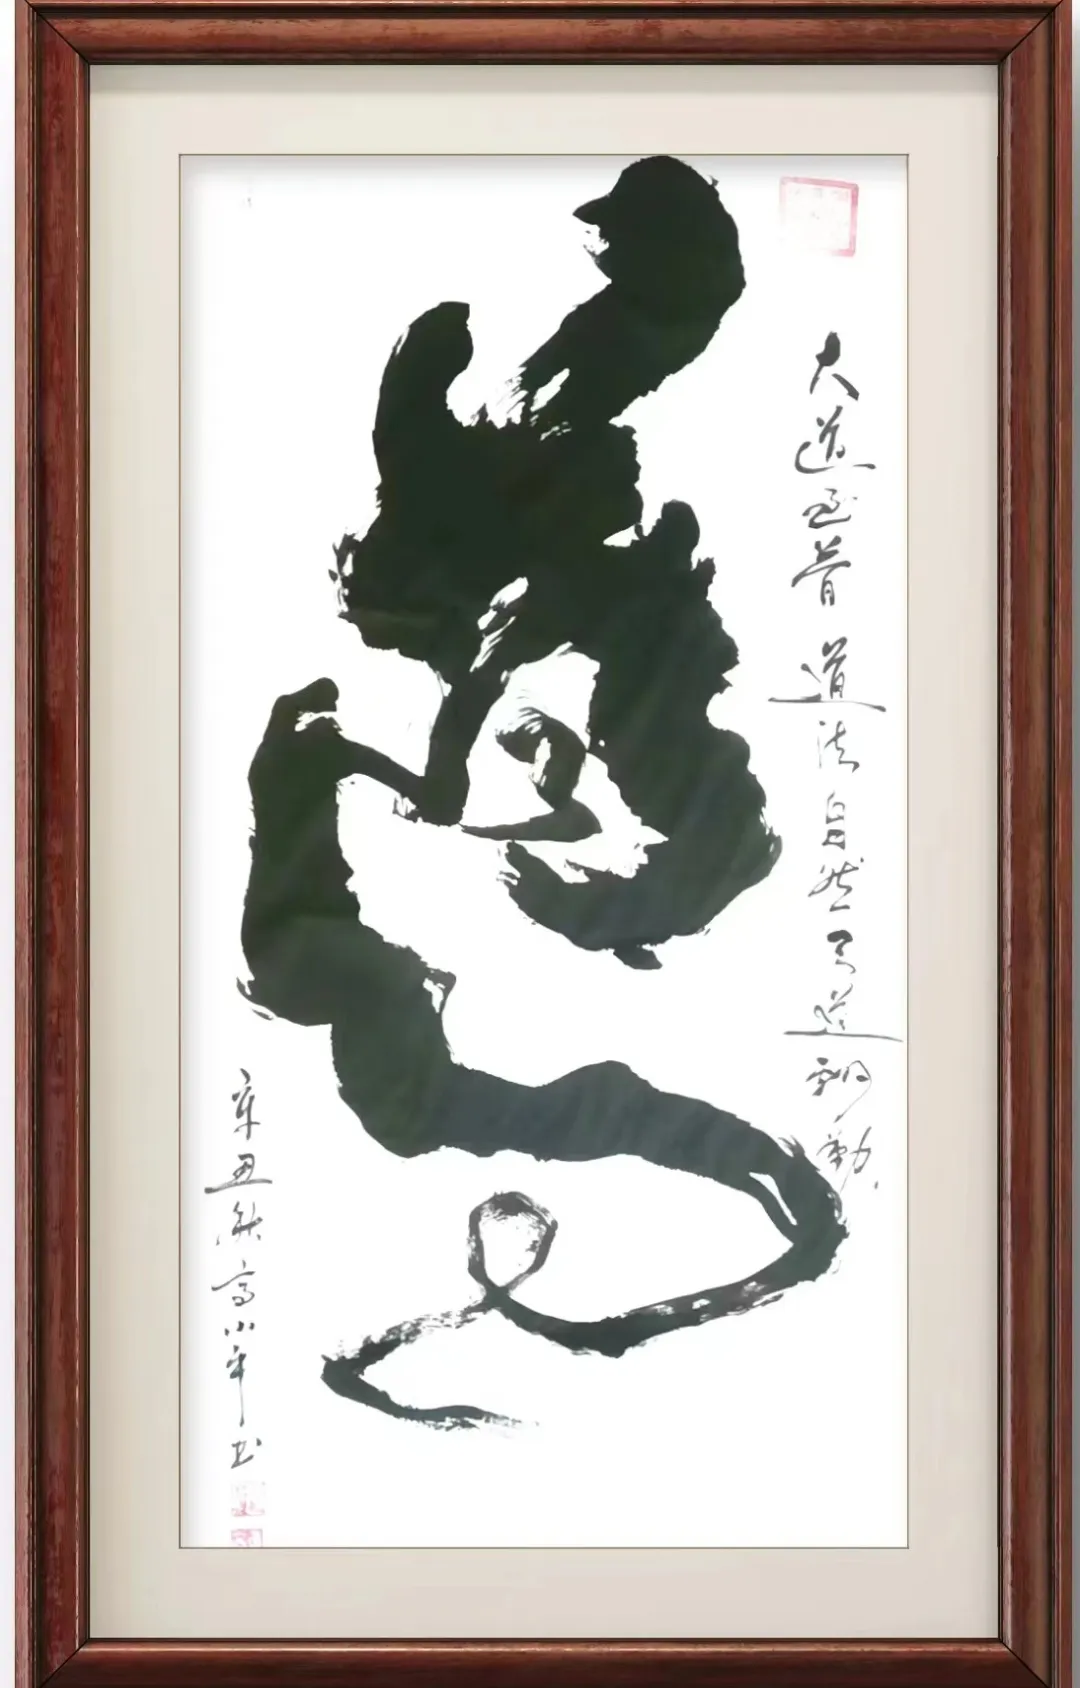 道
大道至普 道法自然 弓道酬勤
辛丑秋高小平书